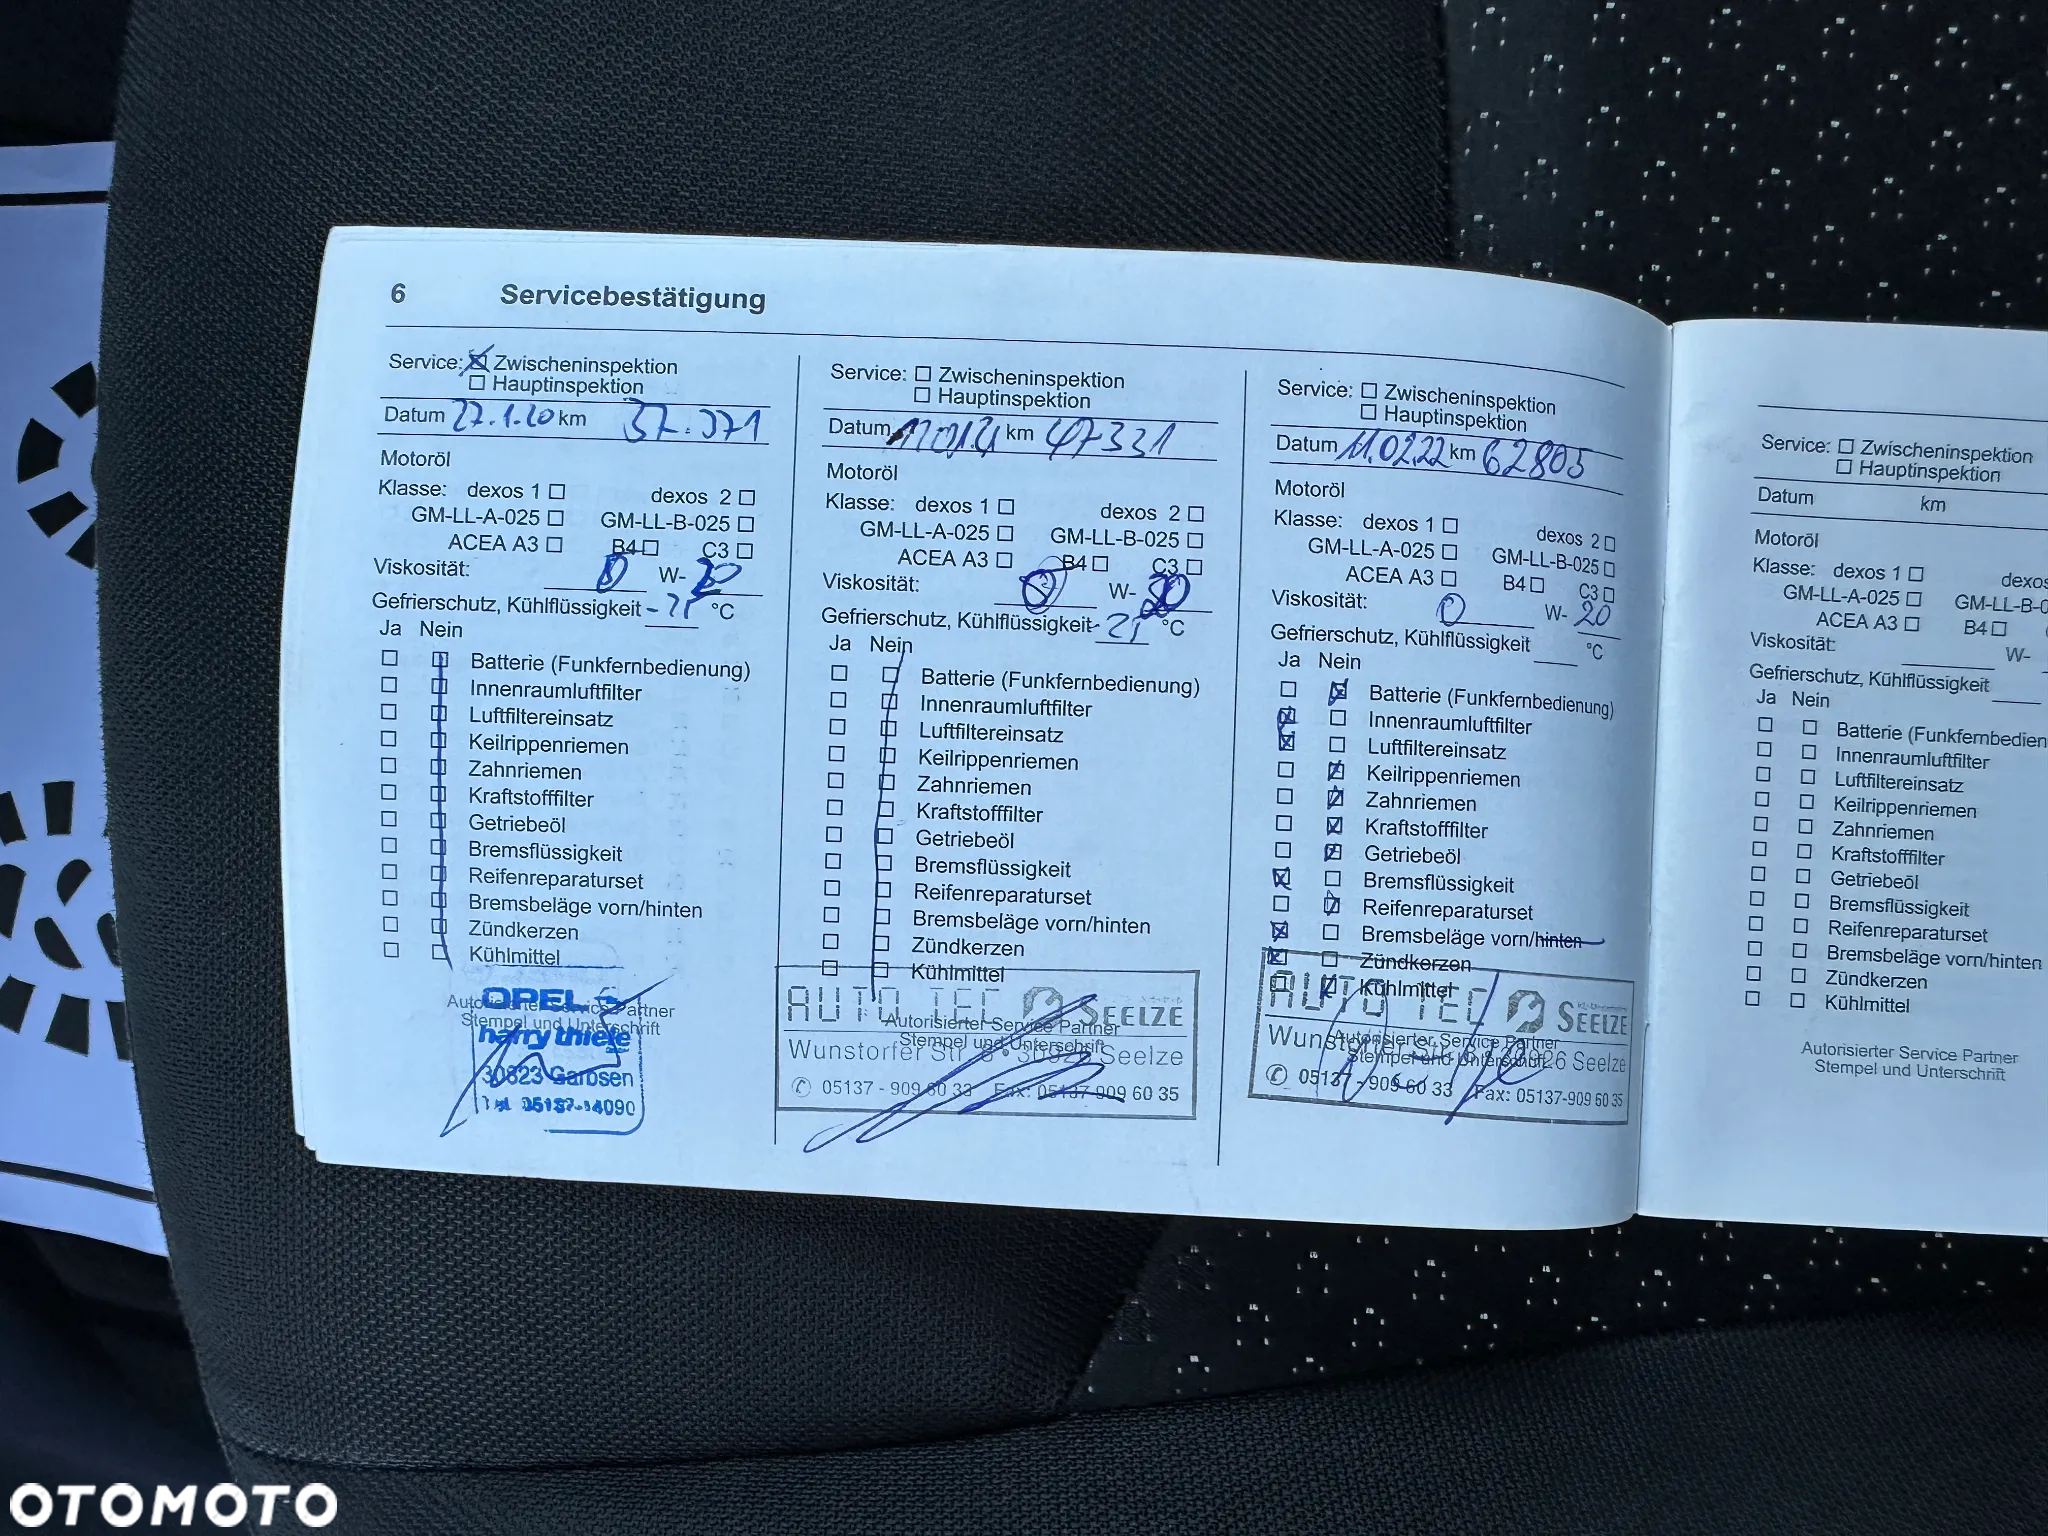 6 Servicebestätigung
Service: Zwischeninspektion
Hauptinspektion
Datum 27.1.20 km 37.371
Motoröl
Klasse: dexos 1 dexos 2
GM-LL-A-025 GM-LL-B-025
ACEA A3 B4 C3
Viskosität: 0 W- 20
Gefrierschutz, Kühlflüssigkeit °C
Ja Nein
Batterie (Funkfernbedienung)
Innenraumluftfilter
Luftfiltereinsatz
Keilrippenriemen
Zahnriemen
Kraftstofffilter
Getriebeöl
Bremsflüssigkeit
Reifenreparaturset
Bremsbeläge vorn/hinten
Zündkerzen
Kühlmittel
Autorisierter Service Partner
Stempel und Unterschrift
OPEL
harry thiele
30823 Garbsen
Tel. 05137-14090
Service: Zwischeninspektion
Hauptinspektion
Datum km 47331
Motoröl
Klasse: dexos 1 dexos 2
GM-LL-A-025 GM-LL-B-025
ACEA A3 B4 C3
Viskosität: 0 W- 20
Gefrierschutz, Kühlflüssigkeit °C
Ja Nein
Batterie (Funkfernbedienung)
Innenraumluftfilter
Luftfiltereinsatz
Keilrippenriemen
Zahnriemen
Kraftstofffilter
Getriebeöl
Bremsflüssigkeit
Reifenreparaturset
Bremsbeläge vorn/hinten
Zündkerzen
Kühlmittel
Autorisierter Service Partner
Stempel und Unterschrift
AUTO TEC SEELZE
Wunstorfer Str. 8 • 30926 Seelze
05137 - 909 60 33 Fax: 05137-909 60 35
Service: Zwischeninspektion
Hauptinspektion
Datum 11.02.22 km 62805
Motoröl
Klasse: dexos 1 dexos 2
GM-LL-A-025 GM-LL-B-025
ACEA A3 B4 C3
Viskosität: 0 W- 20
Gefrierschutz, Kühlflüssigkeit °C
Ja Nein
Batterie (Funkfernbedienung)
Innenraumluftfilter
Luftfiltereinsatz
Keilrippenriemen
Zahnriemen
Kraftstofffilter
Getriebeöl
Bremsflüssigkeit
Reifenreparaturset
Bremsbeläge vorn/hinten
Zündkerzen
Kühlmittel
Autorisierter Service Partner
Stempel und Unterschrift
AUTO TEC SEELZE
Wunstorfer Str. 8 • 30926 Seelze
05137 - 909 60 33 Fax: 05137-909 60 35
Service: Zwischeninspektion
Hauptinspektion
Datum km
Motoröl
Klasse: dexos 1 dexos
GM-LL-A-025 GM-LL-B-0
ACEA A3 B4
Viskosität: W-
Gefrierschutz, Kühlflüssigkeit
Ja Nein
Batterie (Funkfernbedien
Innenraumluftfilter
Luftfiltereinsatz
Keilrippenriemen
Zahnriemen
Kraftstofffilter
Getriebeöl
Bremsflüssigkeit
Reifenreparaturset
Bremsbeläge vorn/hinten
Zündkerzen
Kühlmittel
Autorisierter Service Partner
Stempel und Unterschrift
OTOMOTO